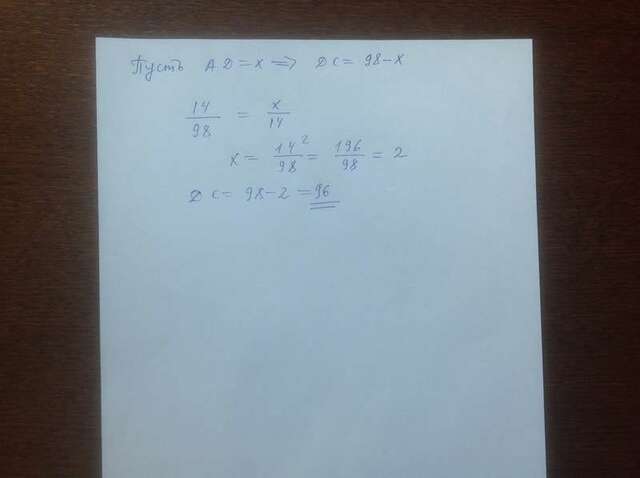 Пусть AD = x ⇒ DC = 98 - x
14/98 = x/14
x = 14²/98 = 196/98 = 2
DC = 98 - 2 = 96